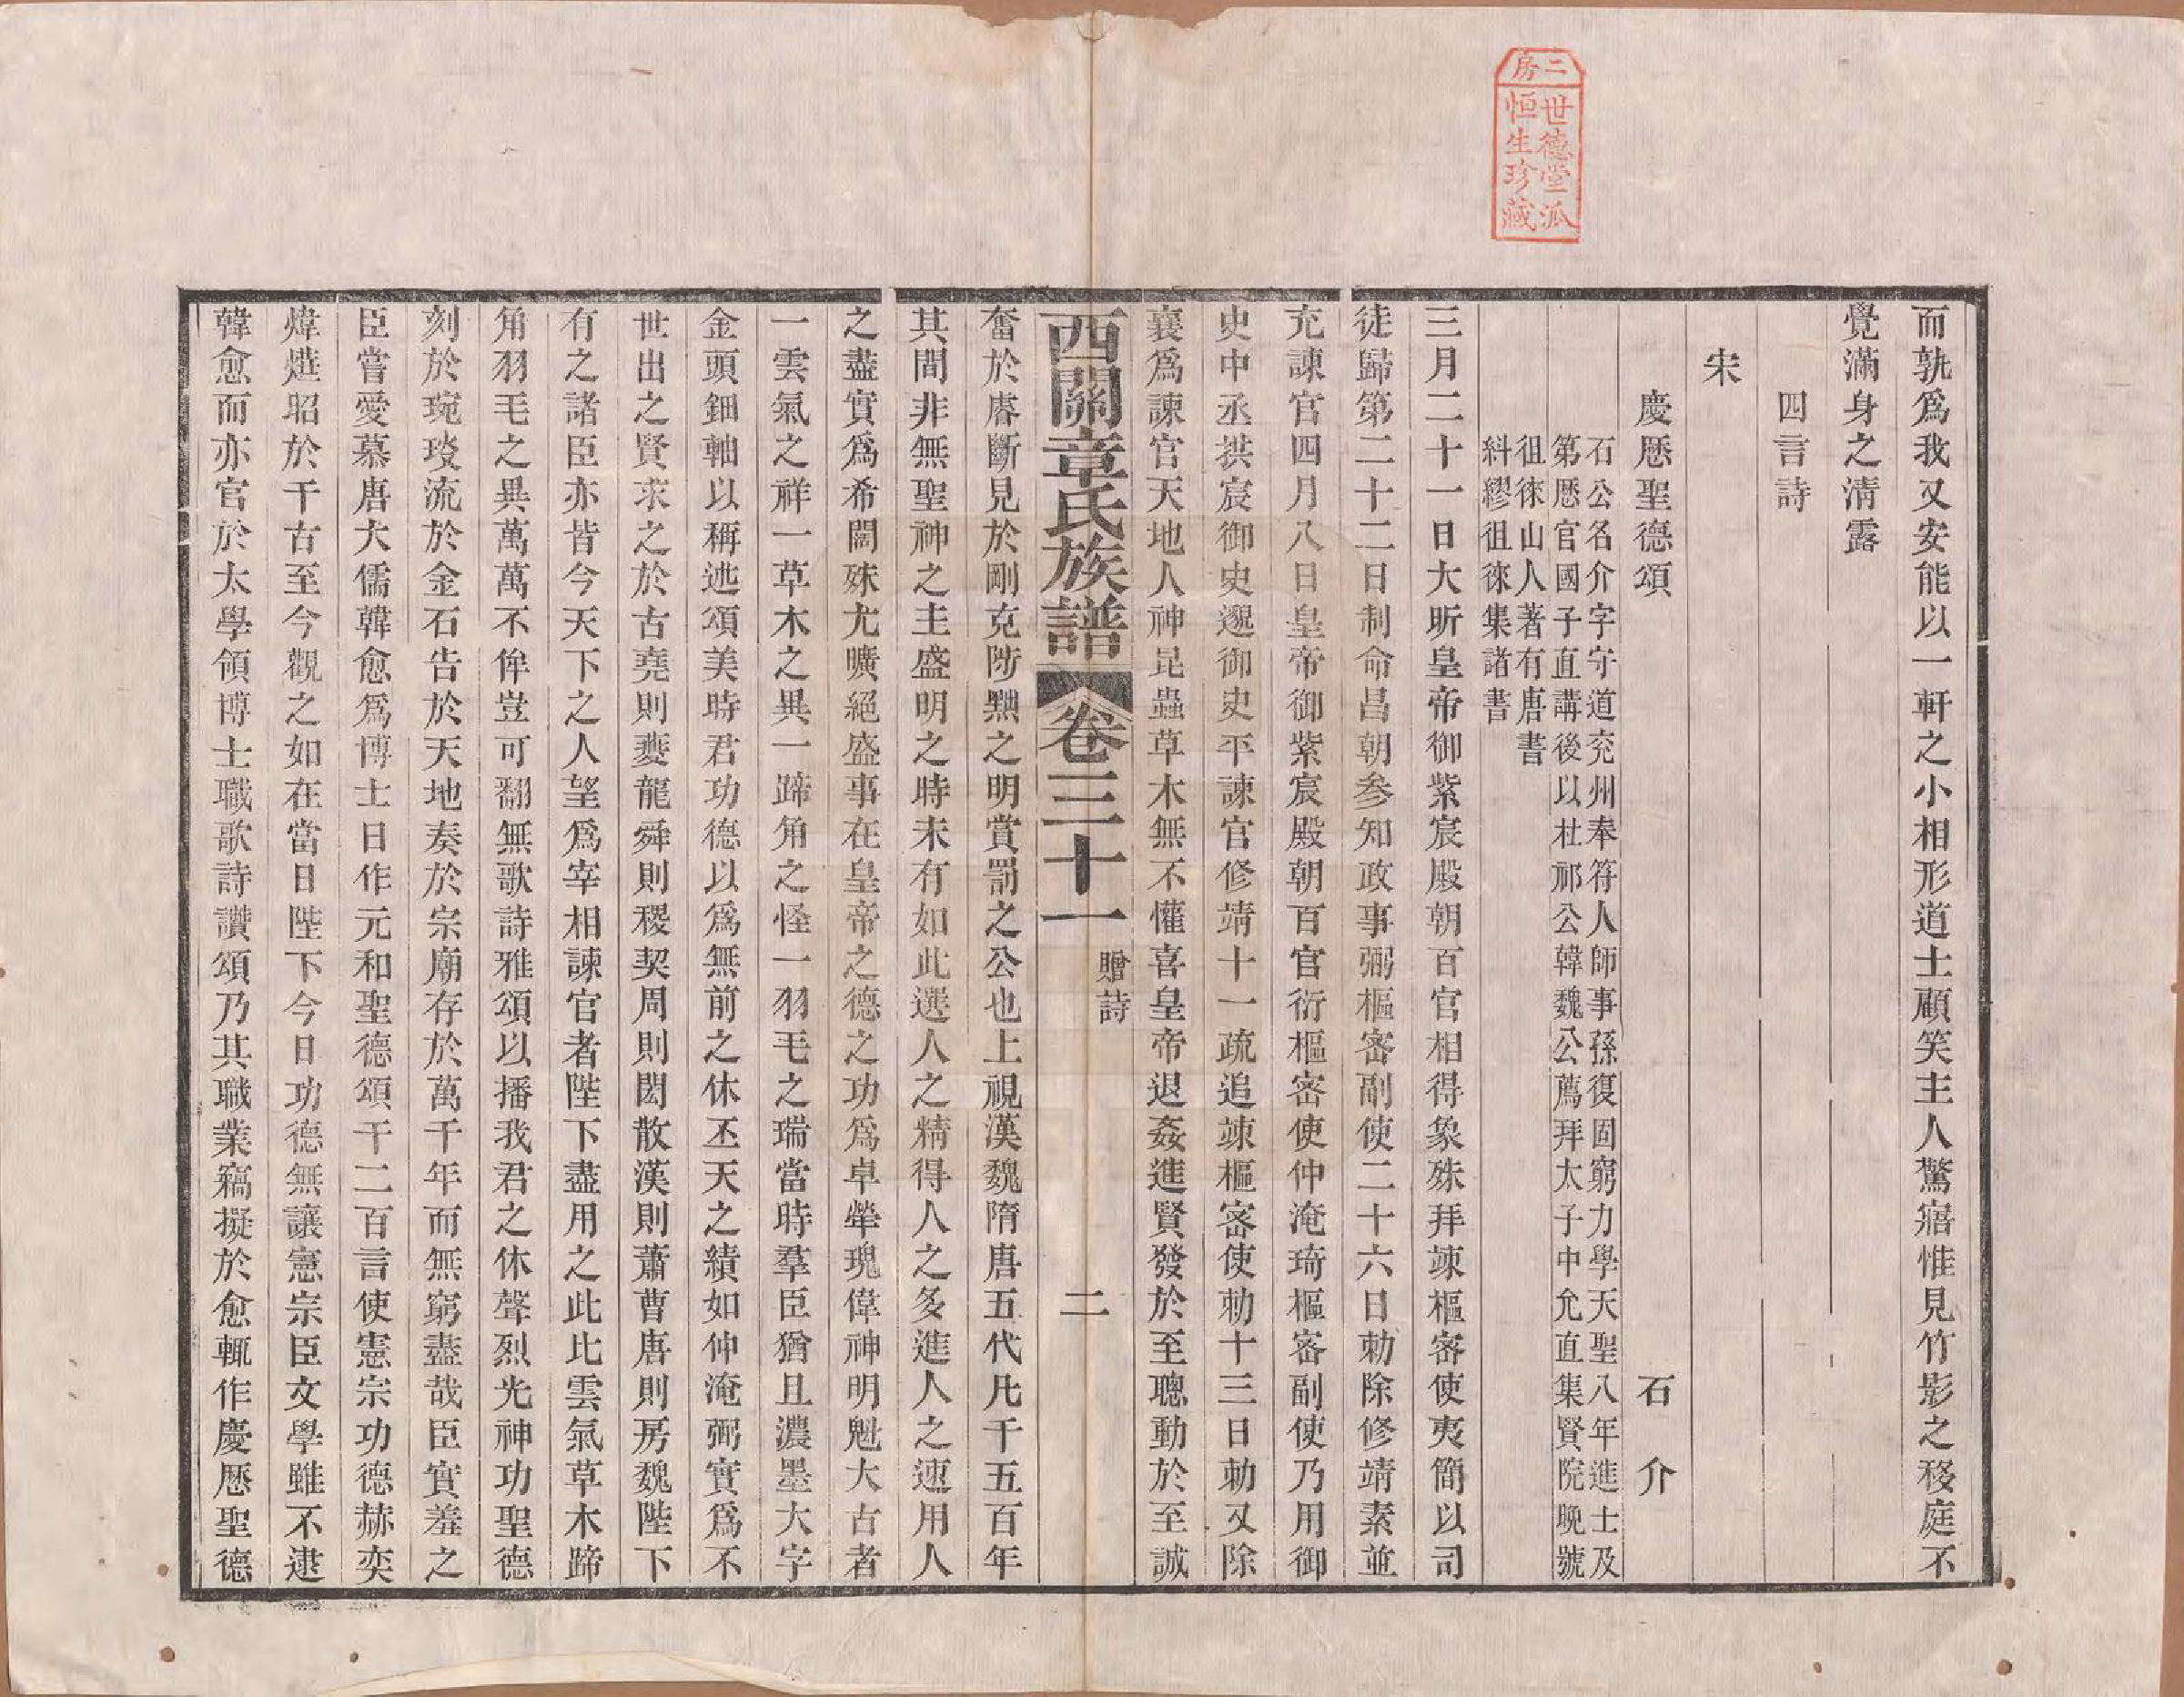 二房
世德堂派
恒生珍藏
而孰爲我又安能以一軒之小相形道士顧笑主人驚寤惟見竹影之移庭不
覺滿身之清露
四言詩
宋
慶厯聖德頌　石介
石公名介字守道兖州奉符人師事孫復固窮力學天聖八年進士及
第厯官國子直講後以杜祁公韓魏公薦拜太子中允直集賢院晚號
徂徠山人著有唐書
糾繆徂徠集諸書
三月二十一日大昕皇帝御紫宸殿朝百官相得象殊拜竦樞密使夷簡以司
徒歸第二十二日制命昌朝参知政事弼樞密副使二十六日勅除修靖素並
充諫官四月八日皇帝御紫宸殿朝百官衍樞密使仲淹琦樞密副使乃用御
史中丞拱宸御史邈御史平諫官修靖十一疏追竦樞密使勅十三日勅又除
襄爲諫官天地人神昆蟲草木無不懽喜皇帝退姦進賢發於至聰動於至誠
西關章氏族譜　卷三十一　贈詩　二
奮於睿斷見於剛克陟黜之明賞罰之公也上視漢魏隋唐五代凡千五百年
其間非無聖神之主盛明之時未有如此選人之精得人之多進人之速用人
之盡實爲希闊殊尤曠絕盛事在皇帝之德之功爲卓犖瑰偉神明魁大古者
一雲氣之祥一草木之異一蹄角之怪一羽毛之瑞當時羣臣猶且濃墨大字
金頭鈿軸以稱述頌美時君功德以爲無前之休丕天之績如仲淹弼實爲不
世出之賢求之於古堯則夔龍舜則稷契周則閎散漢則蕭曹唐則房魏陛下
有之諸臣亦皆今天下之人望爲宰相諫官者陛下盡用之此比雲氣草木蹄
角羽毛之異萬萬不侔豈可翻無歌詩雅頌以播我君之休聲烈光神功聖德
刻於琬琰流於金石告於天地奏於宗廟存於萬千年而無窮盡哉臣實羞之
臣嘗愛慕唐大儒韓愈爲博士日作元和聖德頌千二百言使憲宗功德赫奕
煒燡昭於千古至今觀之如在當日陛下今日功德無讓憲宗臣文學雖不逮
韓愈而亦官於太學領博士職歌詩讚頌乃其職業竊擬於愈輒作慶厯聖德